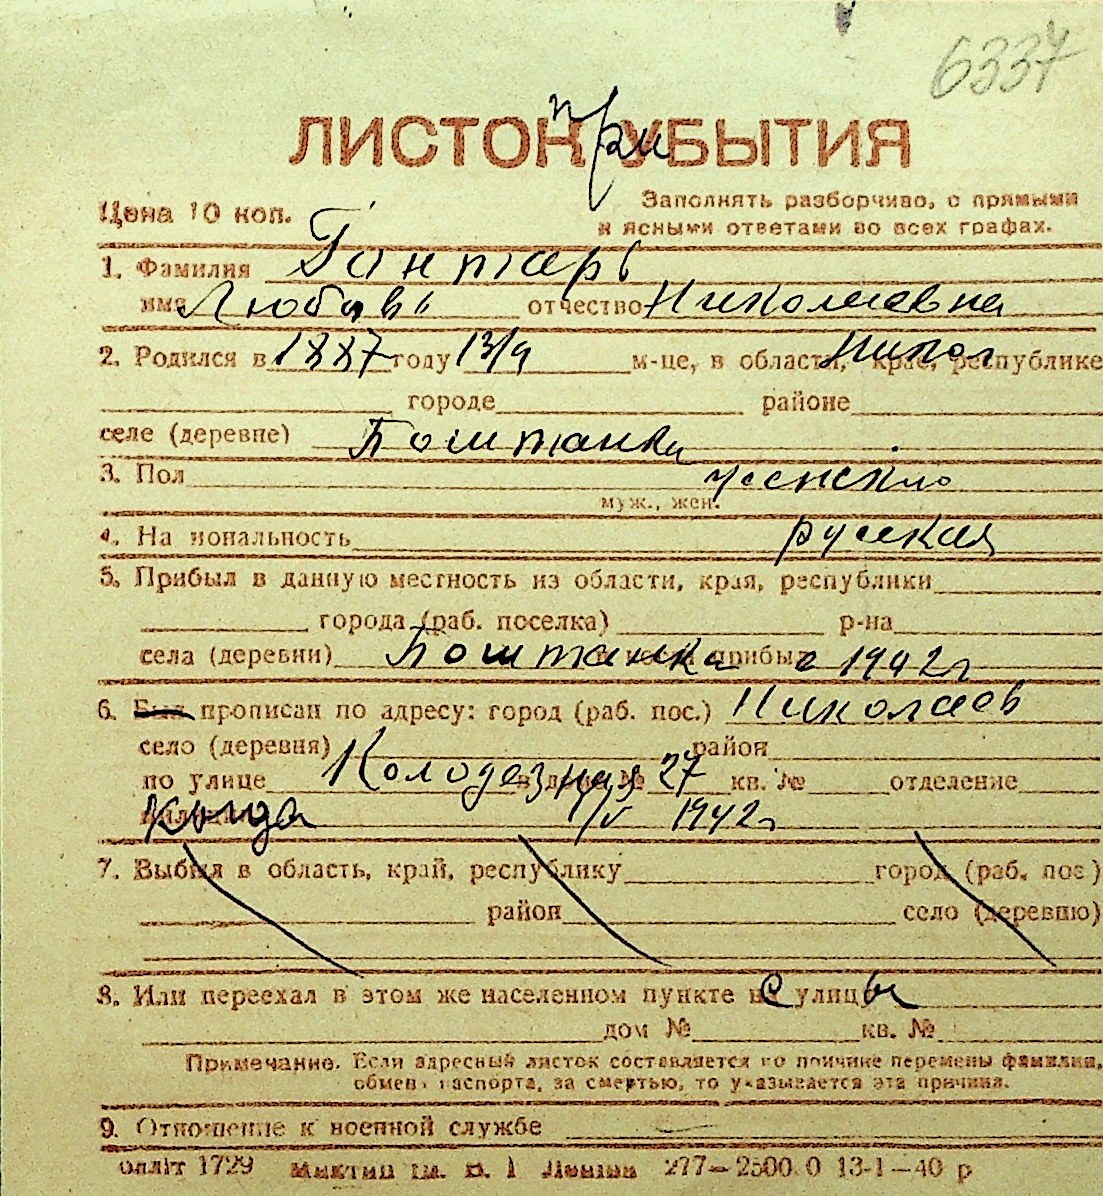 6337
ЛИСТОК при УБЫТИЯ
Цена 10 коп. Заполнять разборчиво, с прямыми
и ясными ответами во всех графах.
1. Фамилия Гонтарь
имя Любовь отчество Николаевна
2. Родился в 1887 году 13/9 м-це, в области, крае, республике Никол
городе районе
селе (деревне) Боштанка
3. Пол женский
муж., жен.
4. На иональность русская
5. Прибыл в данную местность из области, края, республики
города (раб. поселка) р-на
села (деревни) Боштанка прибыл с 1942 г
6. Был прописан по адресу: город (раб. пос.) Николаев
село (деревня) район
по улице Колодезная в доме № 27 кв. № отделение
когда 1/V 1942 г
7. Выбыл в область, край, республику город (раб. пос)
район село (деревню)
8. Или переехал в этом же населенном пункте с улицы
дом № кв. №
Примечание. Если адресный листок составляется по причине перемены фамилии,
обмен паспорта, за смертью, то указывается эта причина.
9. Отношение к военной службе
олліт 1729 277—2500.0 13-1—40 р